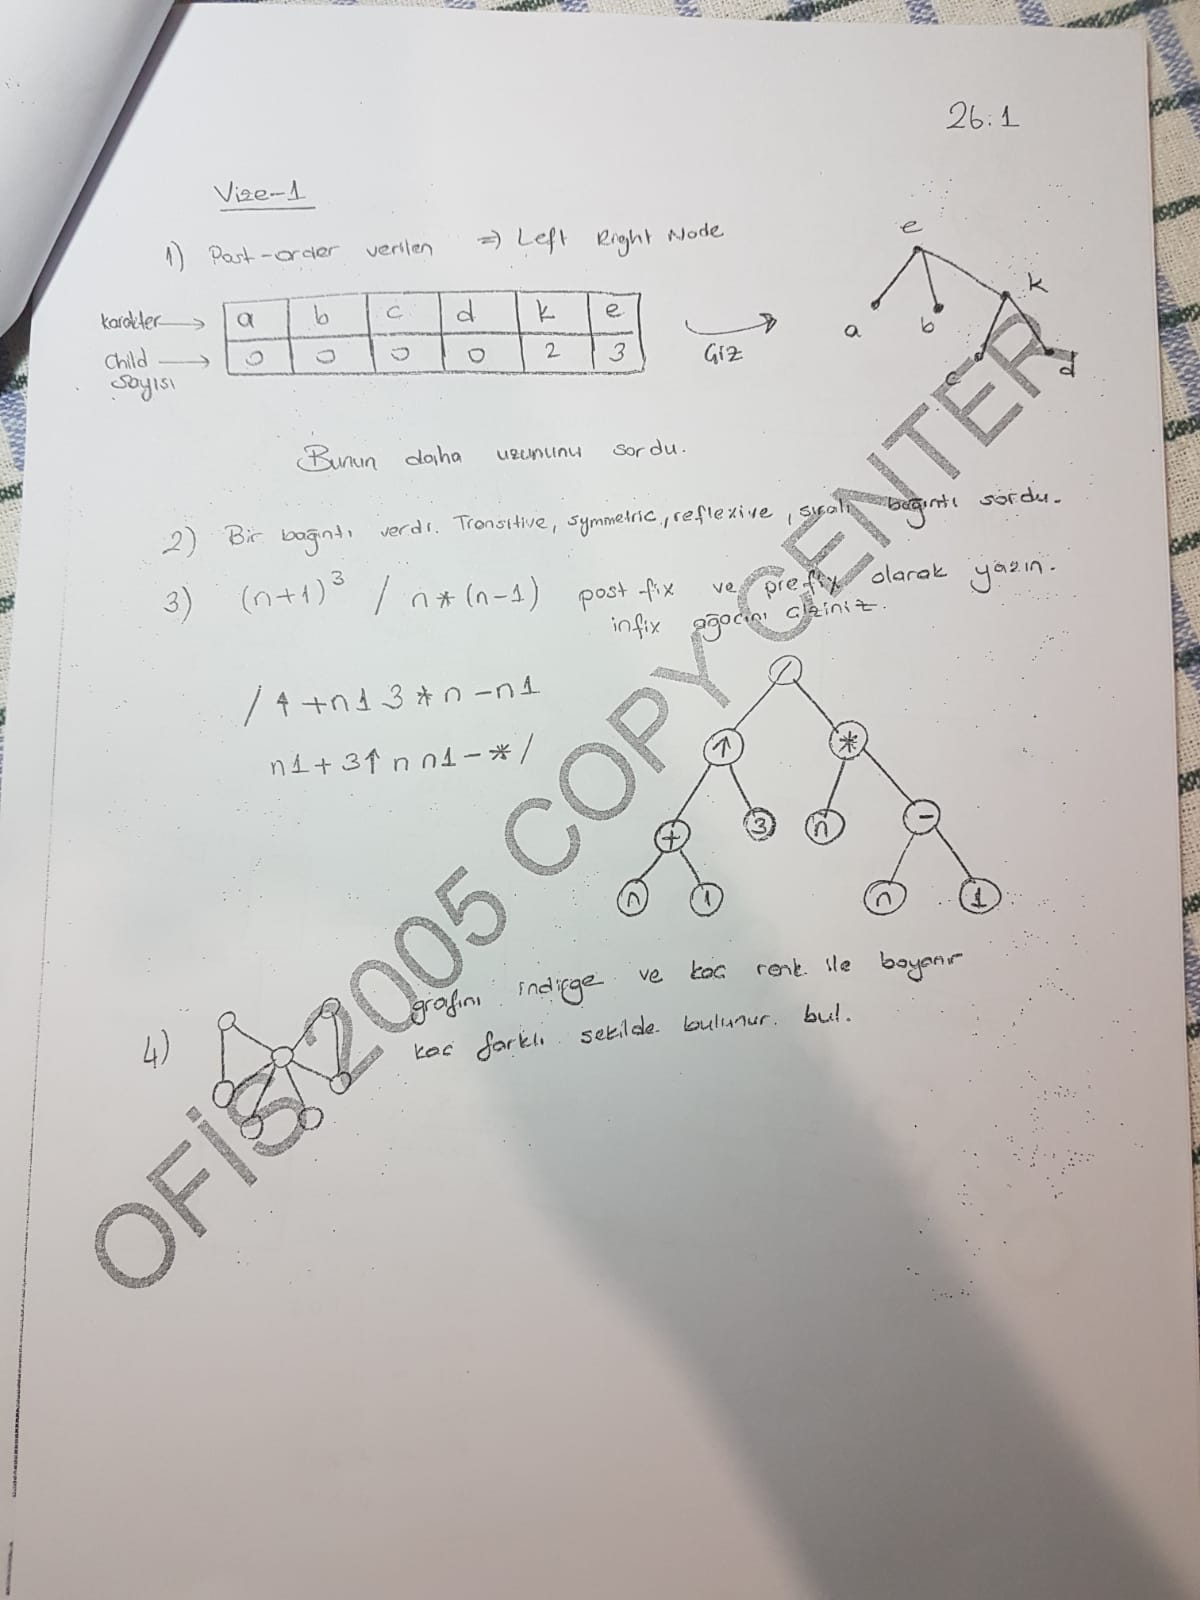 26.1
Vize-1
1) Post-order verilen => Left Right Node
karakter → a b c d k e
Child → 0 0 0 0 2 3
sayısı
Çiz
e
k
a
b
c
d
Bunun daha uzununu sordu.
2) Bir bağıntı verdi. Transitive, symmetric, reflexive, sıralı bağıntı sordu.
3) (n+1)³ / n*(n-1) post-fix ve prefix olarak yazın.
infix ağacını çiziniz.
/ ↑ + n 1 3 * n - n 1
n 1 + 3 ↑ n n 1 - * /
/
↑ *
+ 3 n -
n 1 n 1
4) grafını indirge ve kaç renk ile boyanır
kaç farklı şekilde bulunur. bul.
OFİS 2005 COPY CENTER